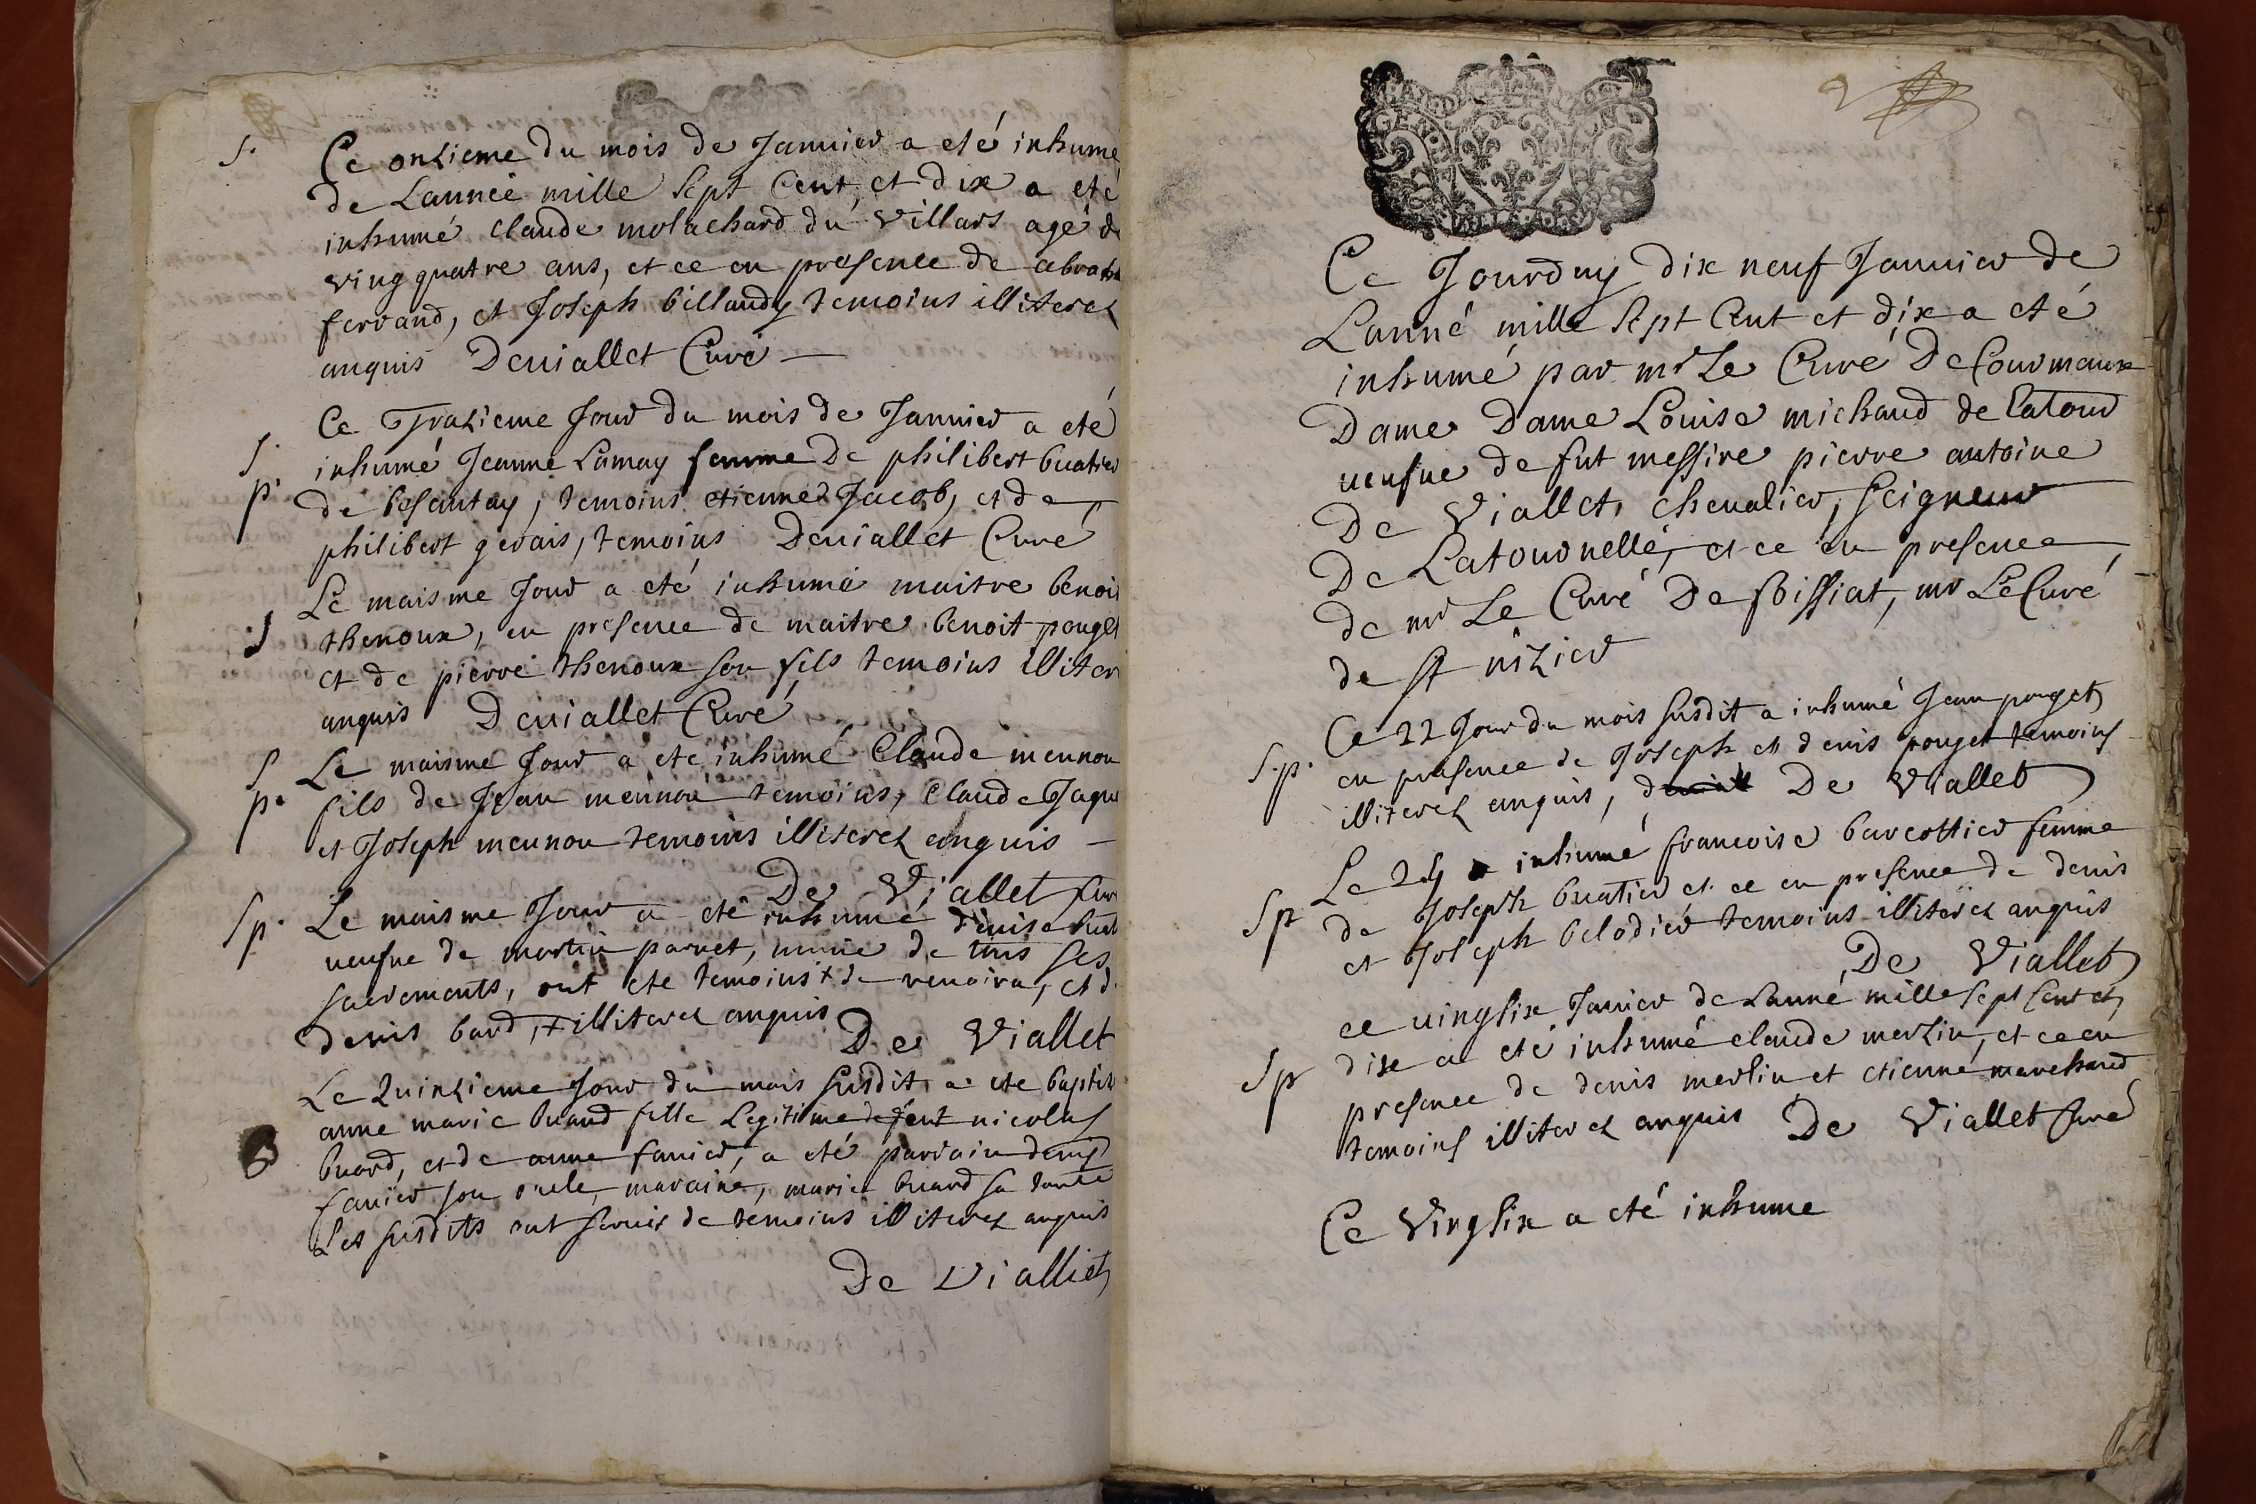 S.
Ce onzieme du mois de Januier a eté inhumé
de Lanneé mille Sept Cent, et dix a eté
inhumé claude molachard du Villars agé d
ving quatre ans, et ce en presence de
ferrand, et Joseph billaudy temoins illiterez
anquis Deuiallet Curé
Ce Trazieme Jour du mois de Januier a eté
S.
p.
inhumé Jeanne Lamay femme De philibert buatier
de besantay, temoins etienne Jacob, et de
philibert gerais, temoins Deuiallet Curé
Le maisme Jour a eté inhumé maitre benoi
S
thenoux, en presence de maitre benoit pouget
et de pierre thenoux son fils temoins illiter
anquis Deuiallet Curé
S
p.
Le maisme Jour a ete inhumé Claude mennou
fils de Jean mennou temoins, Claude Jaque
et Joseph mennou temoins illiterez enquis
De Viallet Cur
Sp.
Le maisme Jour a eté inhumé denise
ueufue de martin parnet, munie de tous ses
sacrements, ont ete temoins + de et d
denis bard, + illiterez anquis
De Viallet
Le Quinzieme Jour du mois susdit a ete baptis
B
anne marie buard fille Legitime de feut nicolas
buard, et de anne fanier, a eté parrain denis
fanier son oncle, maraine, marie buard sa tante
Les susdits ont seruis de temoins illiterez anquis
De Vialliet
GEN
2
Ce Jourduy dix neuf Januier de
Lanné mille Sept Cent et dix a eté
inhumé par mr Le Curé De Courmaux
Dame Dame Louise michaud de Latour
ueufue de fut messire pierre antoine
De Viallet, cheualier, Seigneur
De Latournelle, et ce en presence
de mr Le Curé De foissiat, mr Le Curé
de St nizier
S.p.
Ce 22 Jour du mois susdit a inhumé Jean pouget
en presence de Joseph et denis pouget temoins
illiterez enquis, De Viallet
Sp
Le a inhumé francoise barcottier femme
de Joseph buatier et ce en presence de denis
et Joseph belodier temoins illiterez anquis
De Viallet
ce uingsix Januier de Lanné mille sept Cent et
Sp
dix a eté inhumé claude merlin, et ce en
presence de denis merlin et etienne marchand
temoins illiterez anquis De Viallet Curé
Ce Vingsix a eté inhume